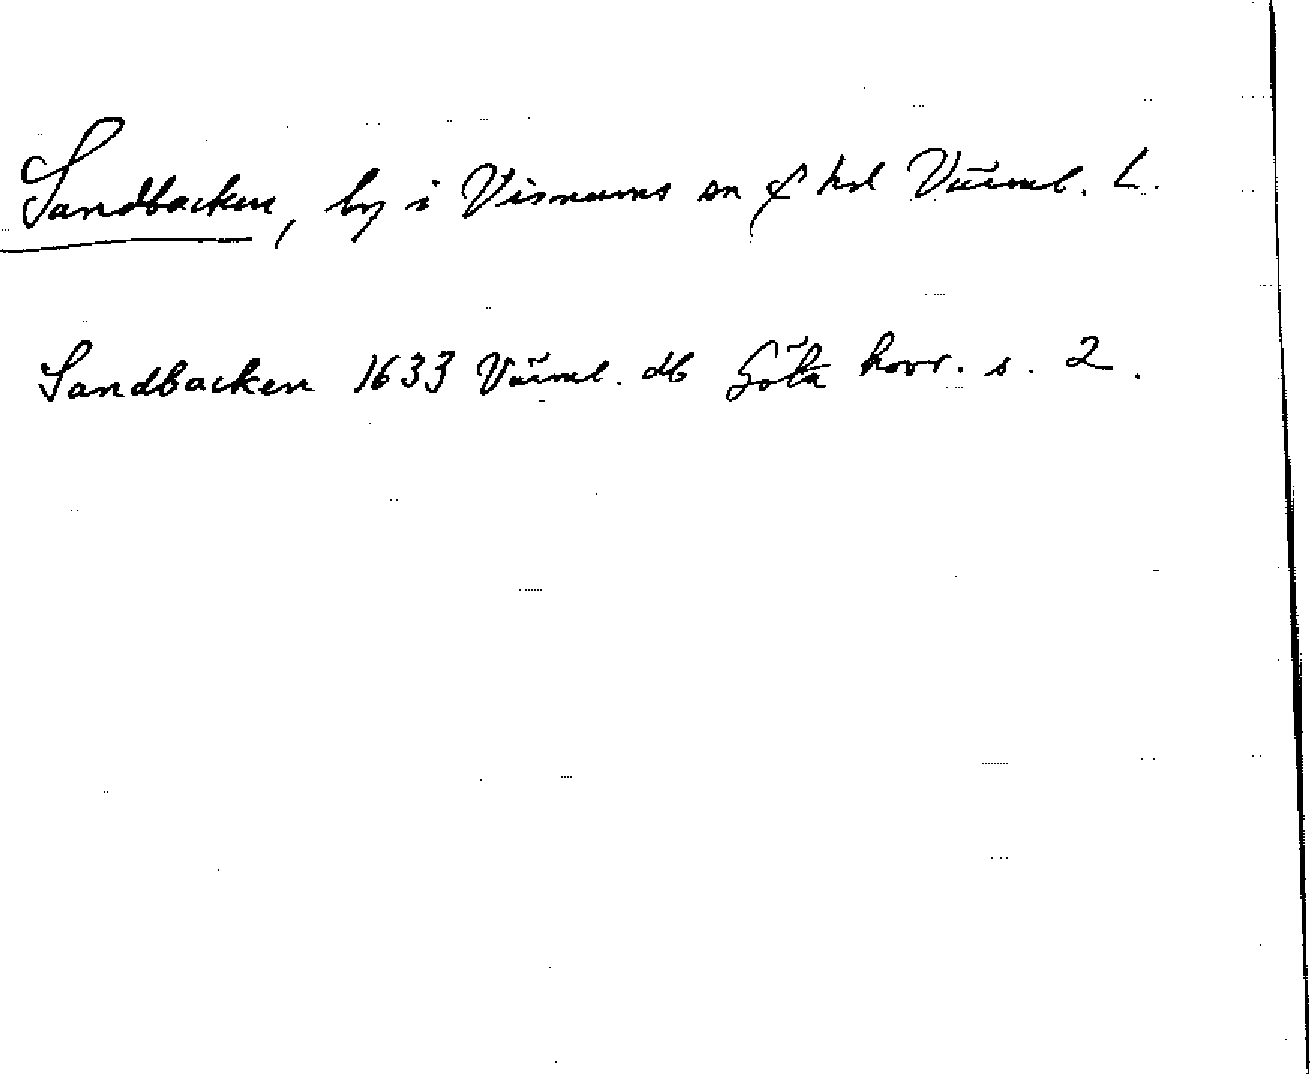 Sandbacken, by i Visnums sn & hd Värml. L.
Sandbacken 1633 Värml. db Göta hovr. s. 2.